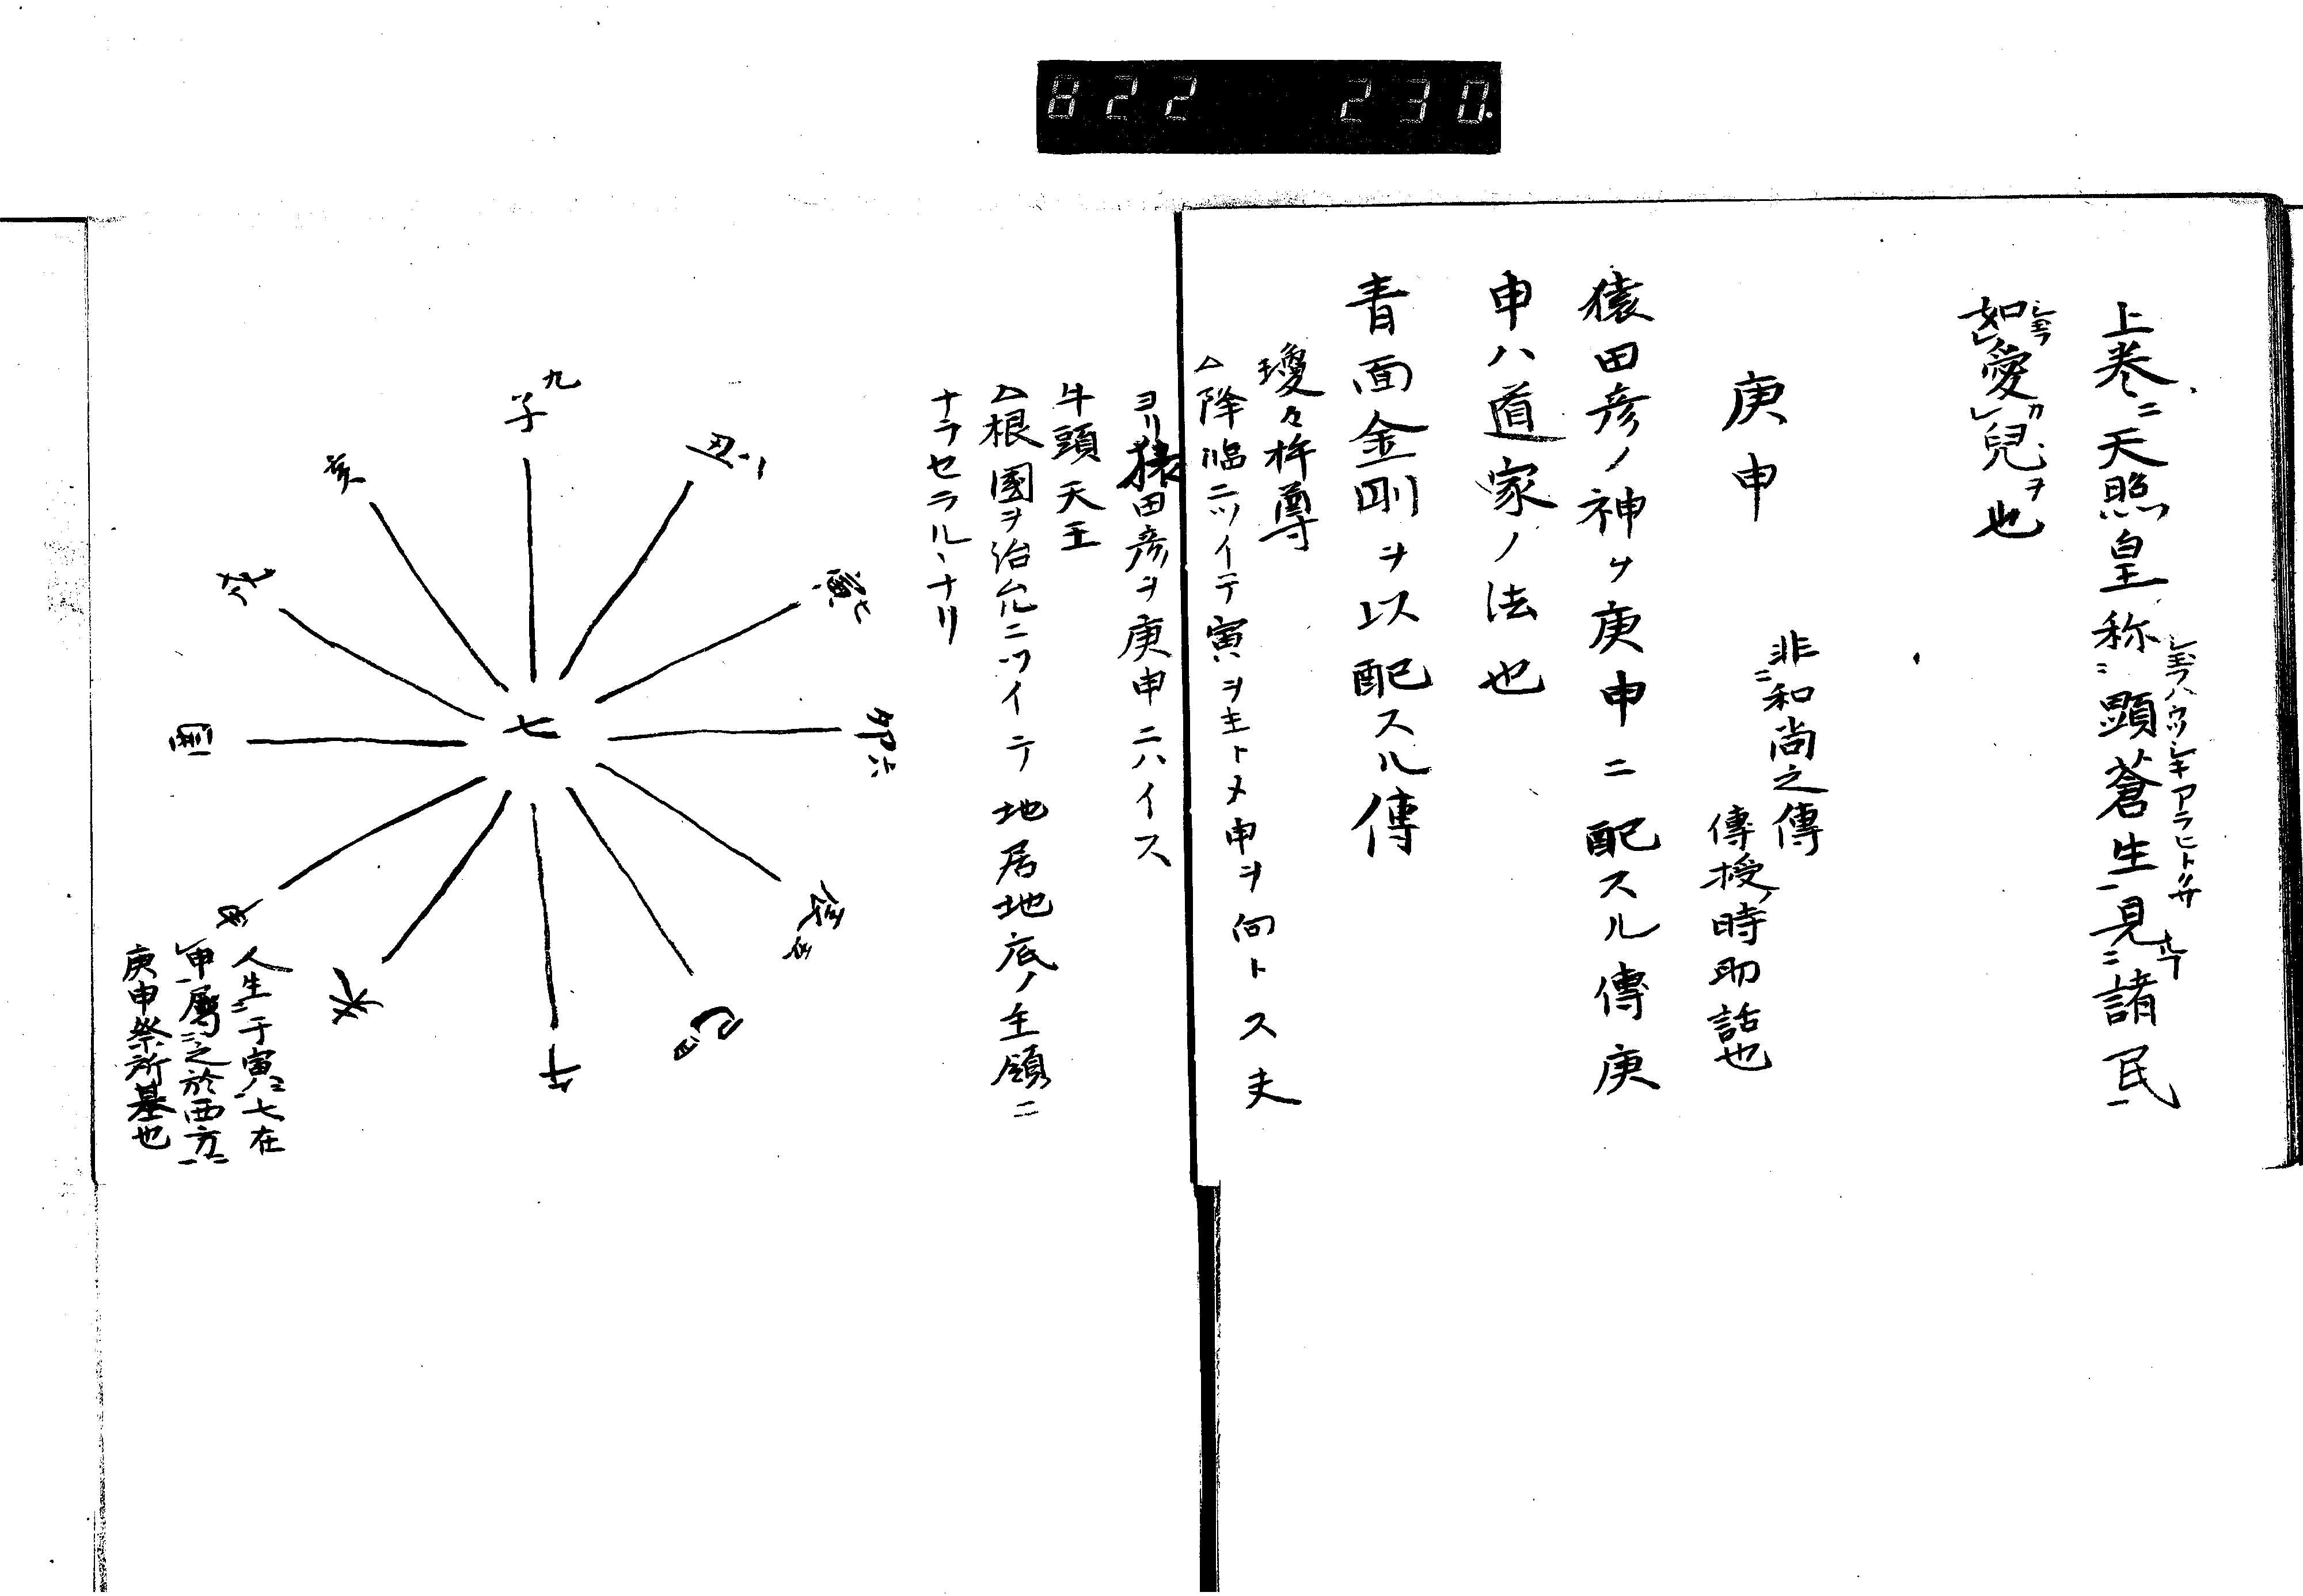 822 230.
上巻ニ天照皇称ニ顕蒼生見ニ諸民
如愛兒ヲ也
庚申
非和尚之傳
傳授ノ時助話也
猿田彦ノ神ヲ庚申ニ配スル傳庚
申ハ道家ノ法也
青面金剛ヲ以配スル傳
瓊々杵尊
△降臨ニツイテ寅ヲ主トメ申ヲ向トス夫
ヨリ猿田彦ヲ庚申ニハイス
牛頭天王
△根國ヲ治ルニツイテ地居地底ノ主領ニ
ナラセラルヽナリ
九
子
丑八
寅七
卯六
辰五
巳四
午
未
申
酉
戌
亥
七
人生ニ于寅ニ七在
申ニ属ニ之於西方ニ
庚申祭所基也